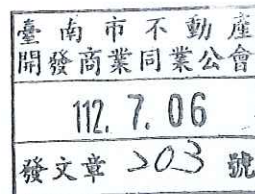 臺南市不動產
開發商業同業公會
112. 7. 06
發文章 203 號